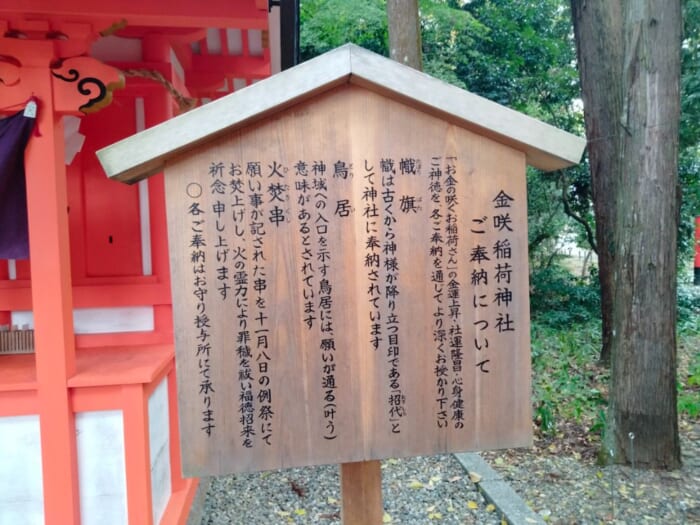 金咲稲荷神社
ご奉納について
「お金の咲くお稲荷さん」の金運上昇・社運隆昌・心身健康の
ご神徳を、各ご奉納を通してより深くお授かり下さい
幟旗
幟は古くから神様が降り立つ目印である「招代」と
して神社に奉納されています
鳥居
神域への入口を示す鳥居には、願いが通る(叶う)
意味があるとされています
火焚串
願い事が記された串を十一月八日の例祭にて
お焚上げし、火の霊力により罪穢を祓い福徳招来を
祈念申し上げます
〇各ご奉納はお守り授与所にて承ります